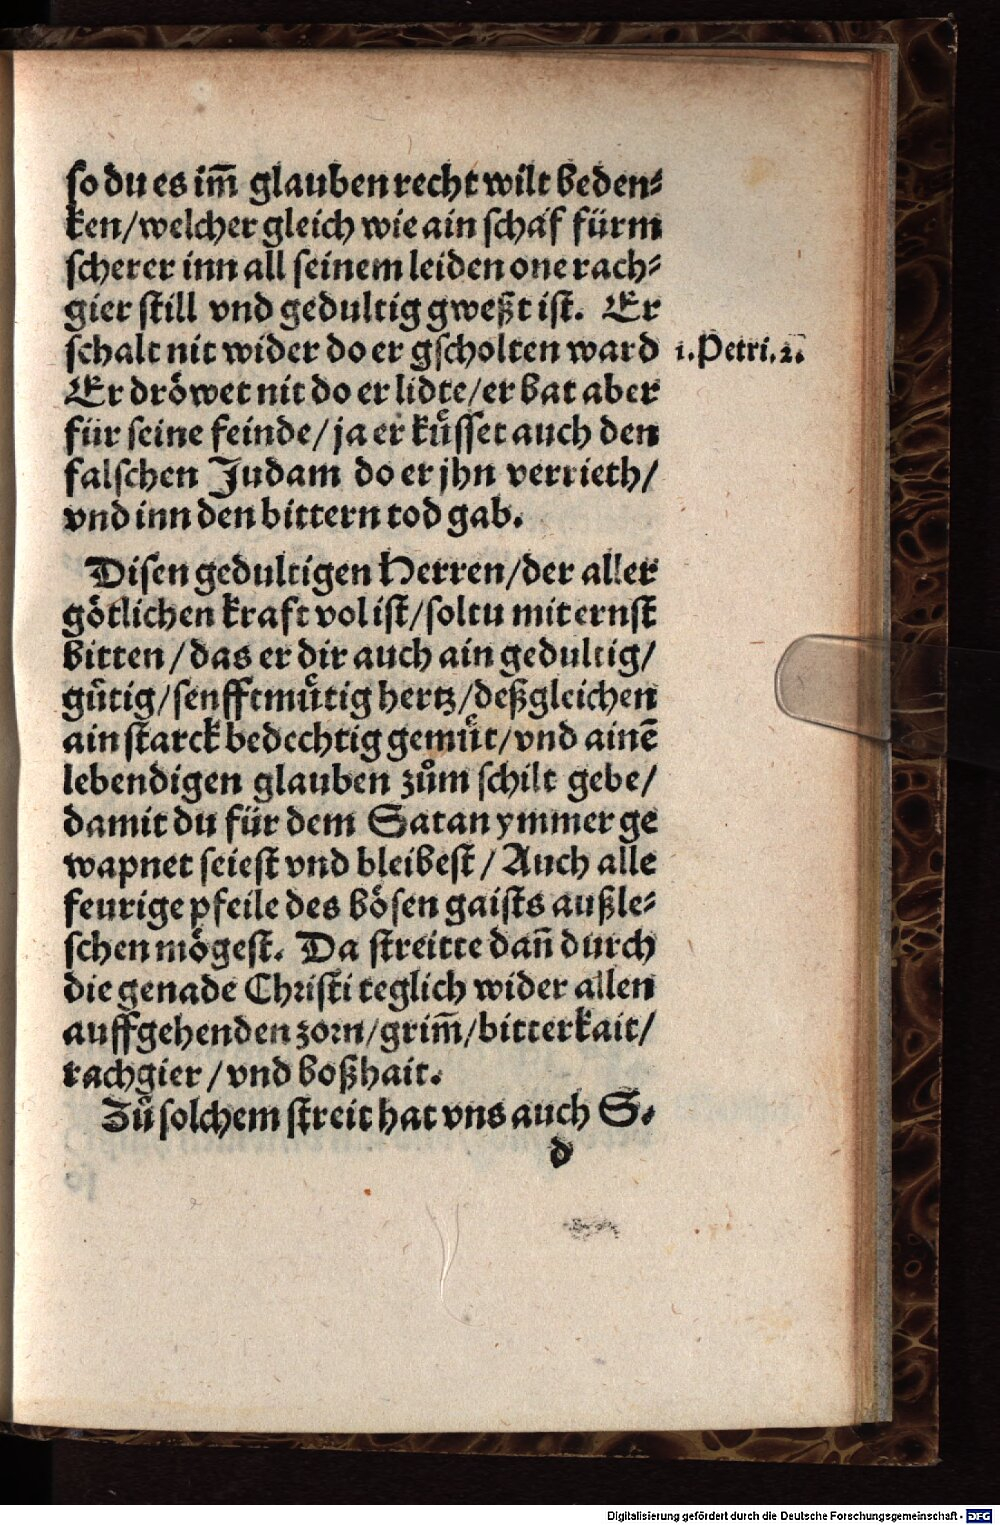 so du es im̄ glauben recht wilt beden⸗
ken/welcher gleich wie ain schaf fürm
scherer inn all seinem leiden one rach⸗
gier still vnd gedultig gweßt ist. Er
schalt nit wider do er gscholten ward
1.Petri.2.
Er dröwet nit do er lidte/er bat aber
für seine feinde/ja er kuͤsset auch den
falschen Judam do er jhn verrieth/
vnd inn den bittern tod gab.
Disen gedultigen Herren/der aller
götlichen kraft vol ist/soltu mit ernst
bitten/das er dir auch ain gedultig/
gütig/senfftmuͤtig hertz/deßgleichen
ain starck bedechtig gemuͤt/vnd ainē
lebendigen glauben zům schilt gebe/
damit du für dem Satan ymmer ge
wapnet seiest vnd bleibest/Auch alle
feurige pfeile des bösen gaists außle⸗
schen mögest. Da streitte dan̄ durch
die genade Christi teglich wider allen
auffgehenden zorn/grim̄/bitterkait/
rachgier/vnd boßhait.
Zů solchem streit hat vns auch S.
d
Digitalisierung gefördert durch die Deutsche Forschungsgemeinschaft - DFG